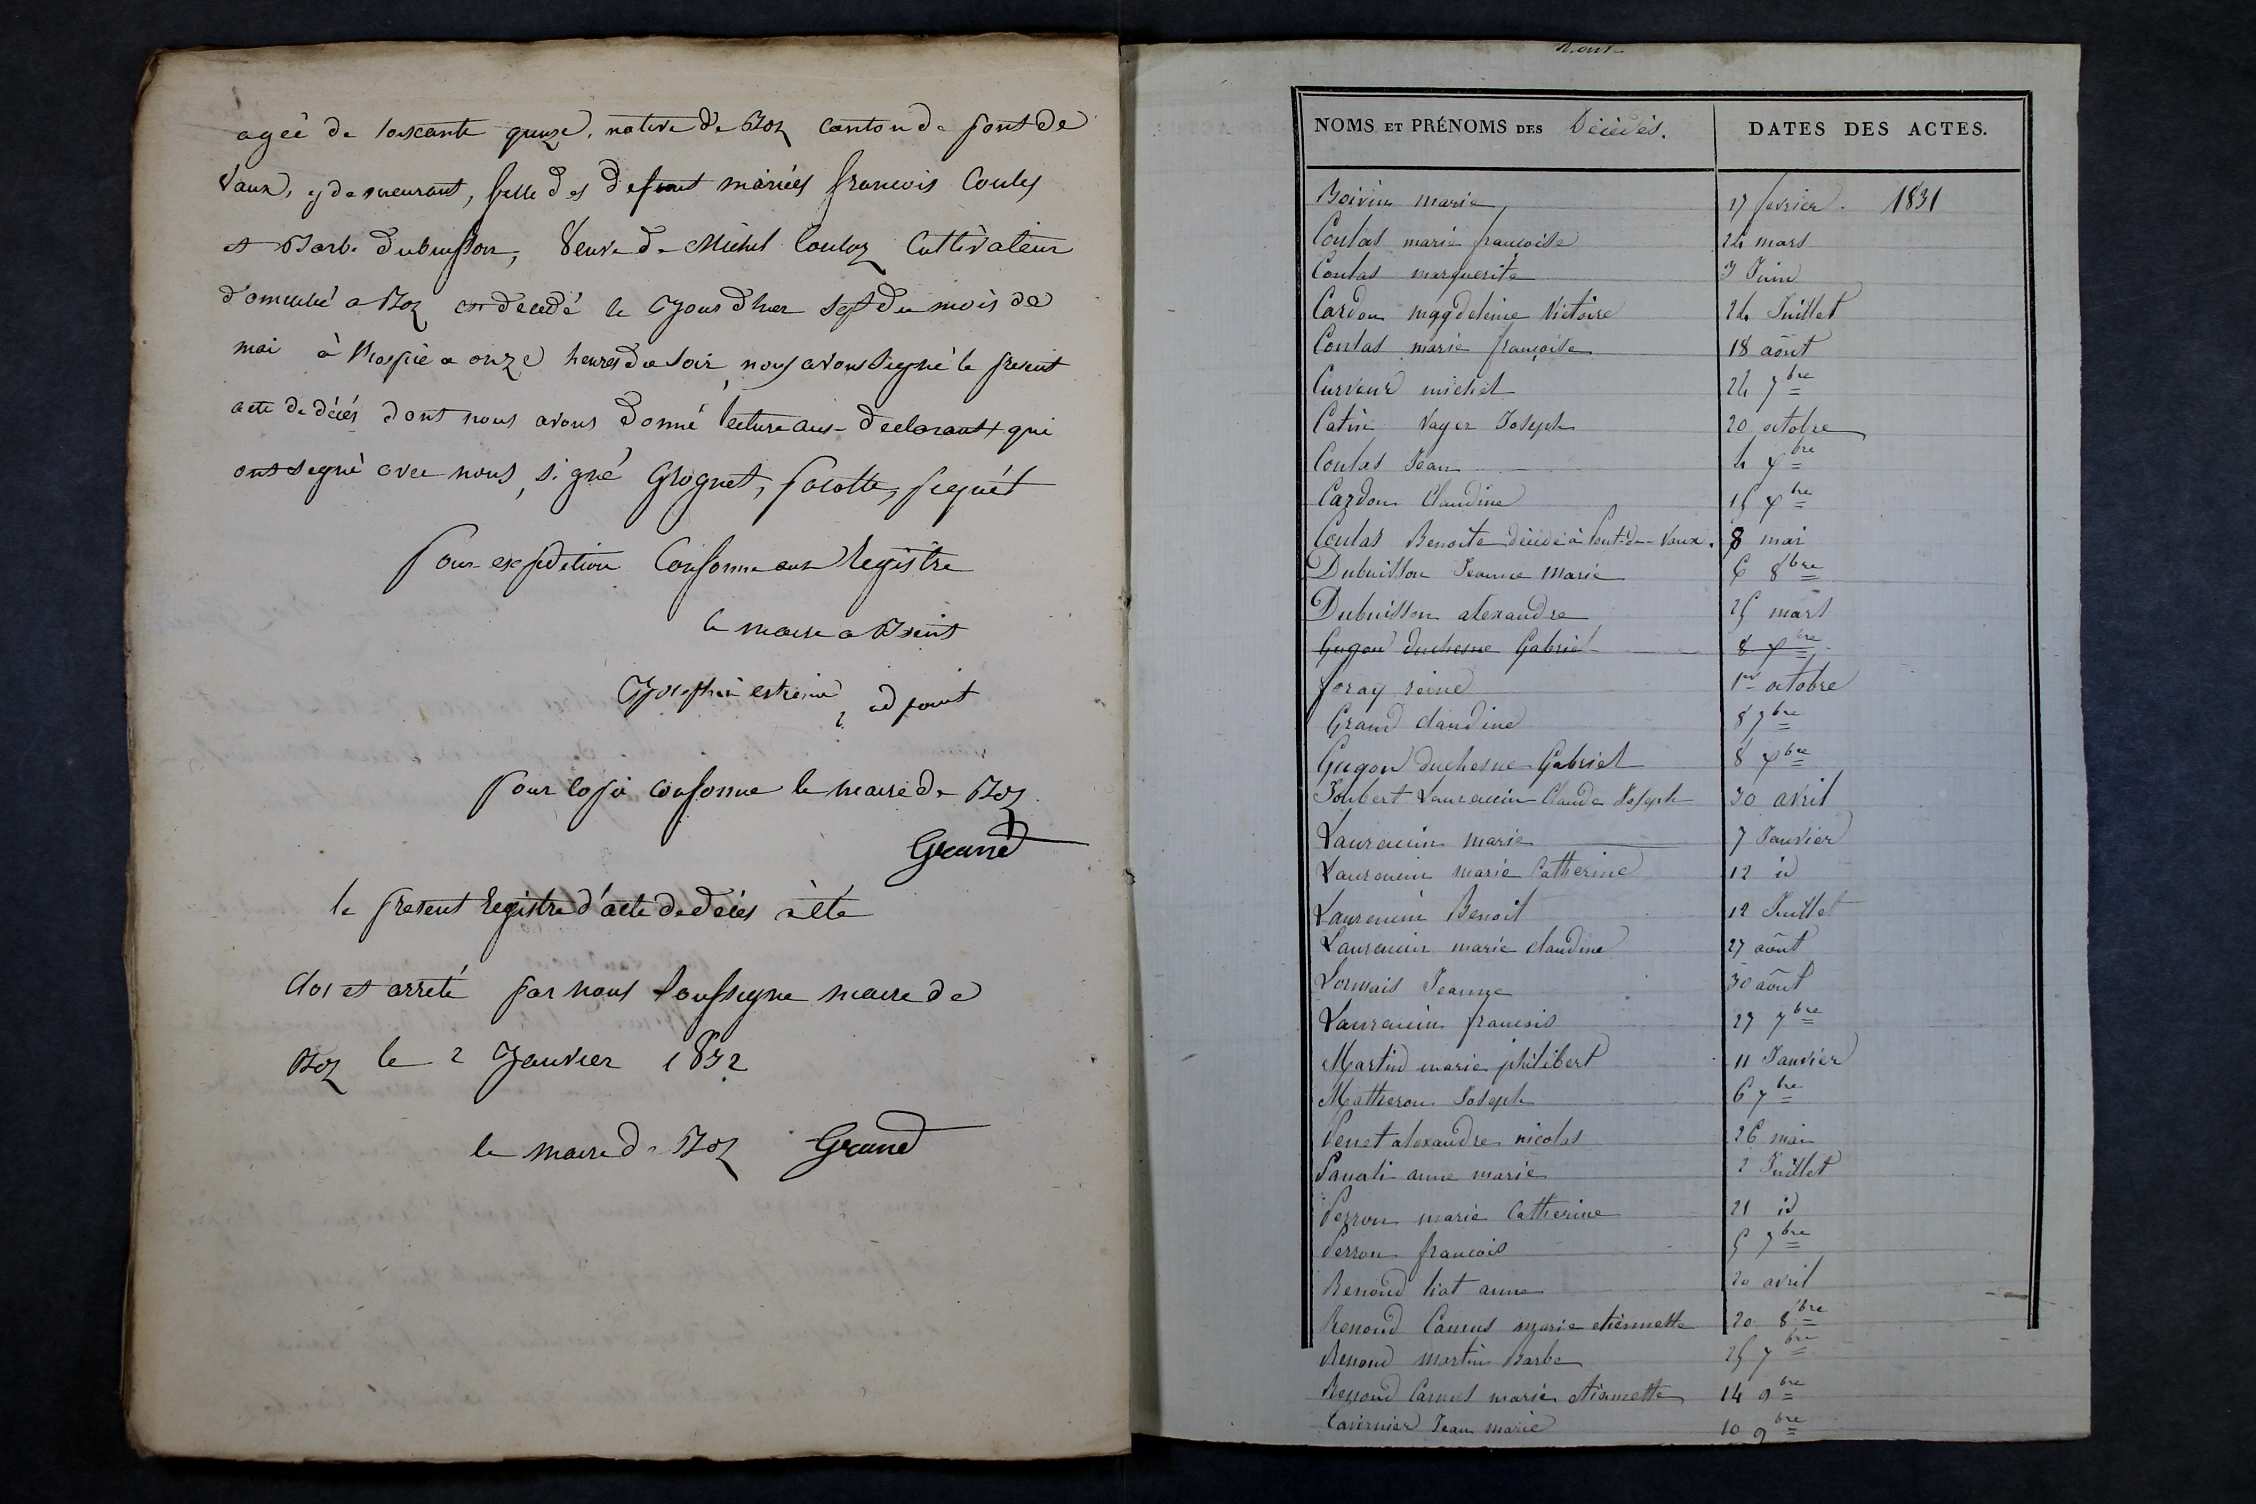 agée de soixante quinze, native de Boz canton de pont de
Vaux, y demeurant, fille des defunt mariés francois Coulas
et Barbe dubuisson, Veuve de Michel Couloz Cultivateur
domicilié a Boz est decedé le jour d'hier sept du mois de
mai à l'hospice a onze heures du soir, nous avons signé le present
acte de décés dont nous avons donné lecture aux declarant qui
ont signé avec nous, signé Grognet, pacotte, piquet
pour expedition Conforme au Registre
le maire absent
adjoint
pour copie conforme le maire de Boz
Grand
le present Registre d'acte de décés à été
clos et arreté par nous soussigné maire de
Boz le 2 Janvier 1832
le maire de Boz Grand
NOMS ET PRÉNOMS DES Décédés. DATES DES ACTES.
Boivin marie 17 fevrier. 1831
Coulas marie françoise 24 mars
Coulas marguerite 3 Juin
Cardon magdeleine Victoire 24 Juillet
Coulas marie françoise 18 août
Curveur michel 24 7bre
Catin Vayer Joseph 20 octobre
Coulas Jean 4 Xbre
Cardon Claudine 15 Xbre
Coulas Benoite décédé à Pont-de-Vaux. 8 mai
Dubuisson Jeanne Marie 6 8bre
Dubuisson alexandre 25 mars
Gugon duchesne Gabriel 8 Xbre
foray reine 1er octobre
Grand claudine 8 7bre
Gugon duchesne Gabriel 8 Xbre
Joubert Laurencin Claude Joseph 30 avril
Laurencin marie 7 Janvier
Laurencin marie Catherine 12 id
Laurencin Benoit 12 Juillet
Laurencin marie claudine 27 août
Lormais Jeanne 30 août
Laurencin francois 27 7bre
Martin marie philibert 11 Janvier
Matheron Joseph 6 7bre
Penet alexandre nicolas 26 mai
anne marie 2 Juillet
Perron marie Catherine 21 id
Perron francois 5 7bre
Renoud liat anne 20 avril
Renoud Camus marie etiennette 20 8bre
Renoud martin Barbe 25 7bre
Renoud Camus marie etiennette 14 9bre
Tavernier Jean marie 10 9bre